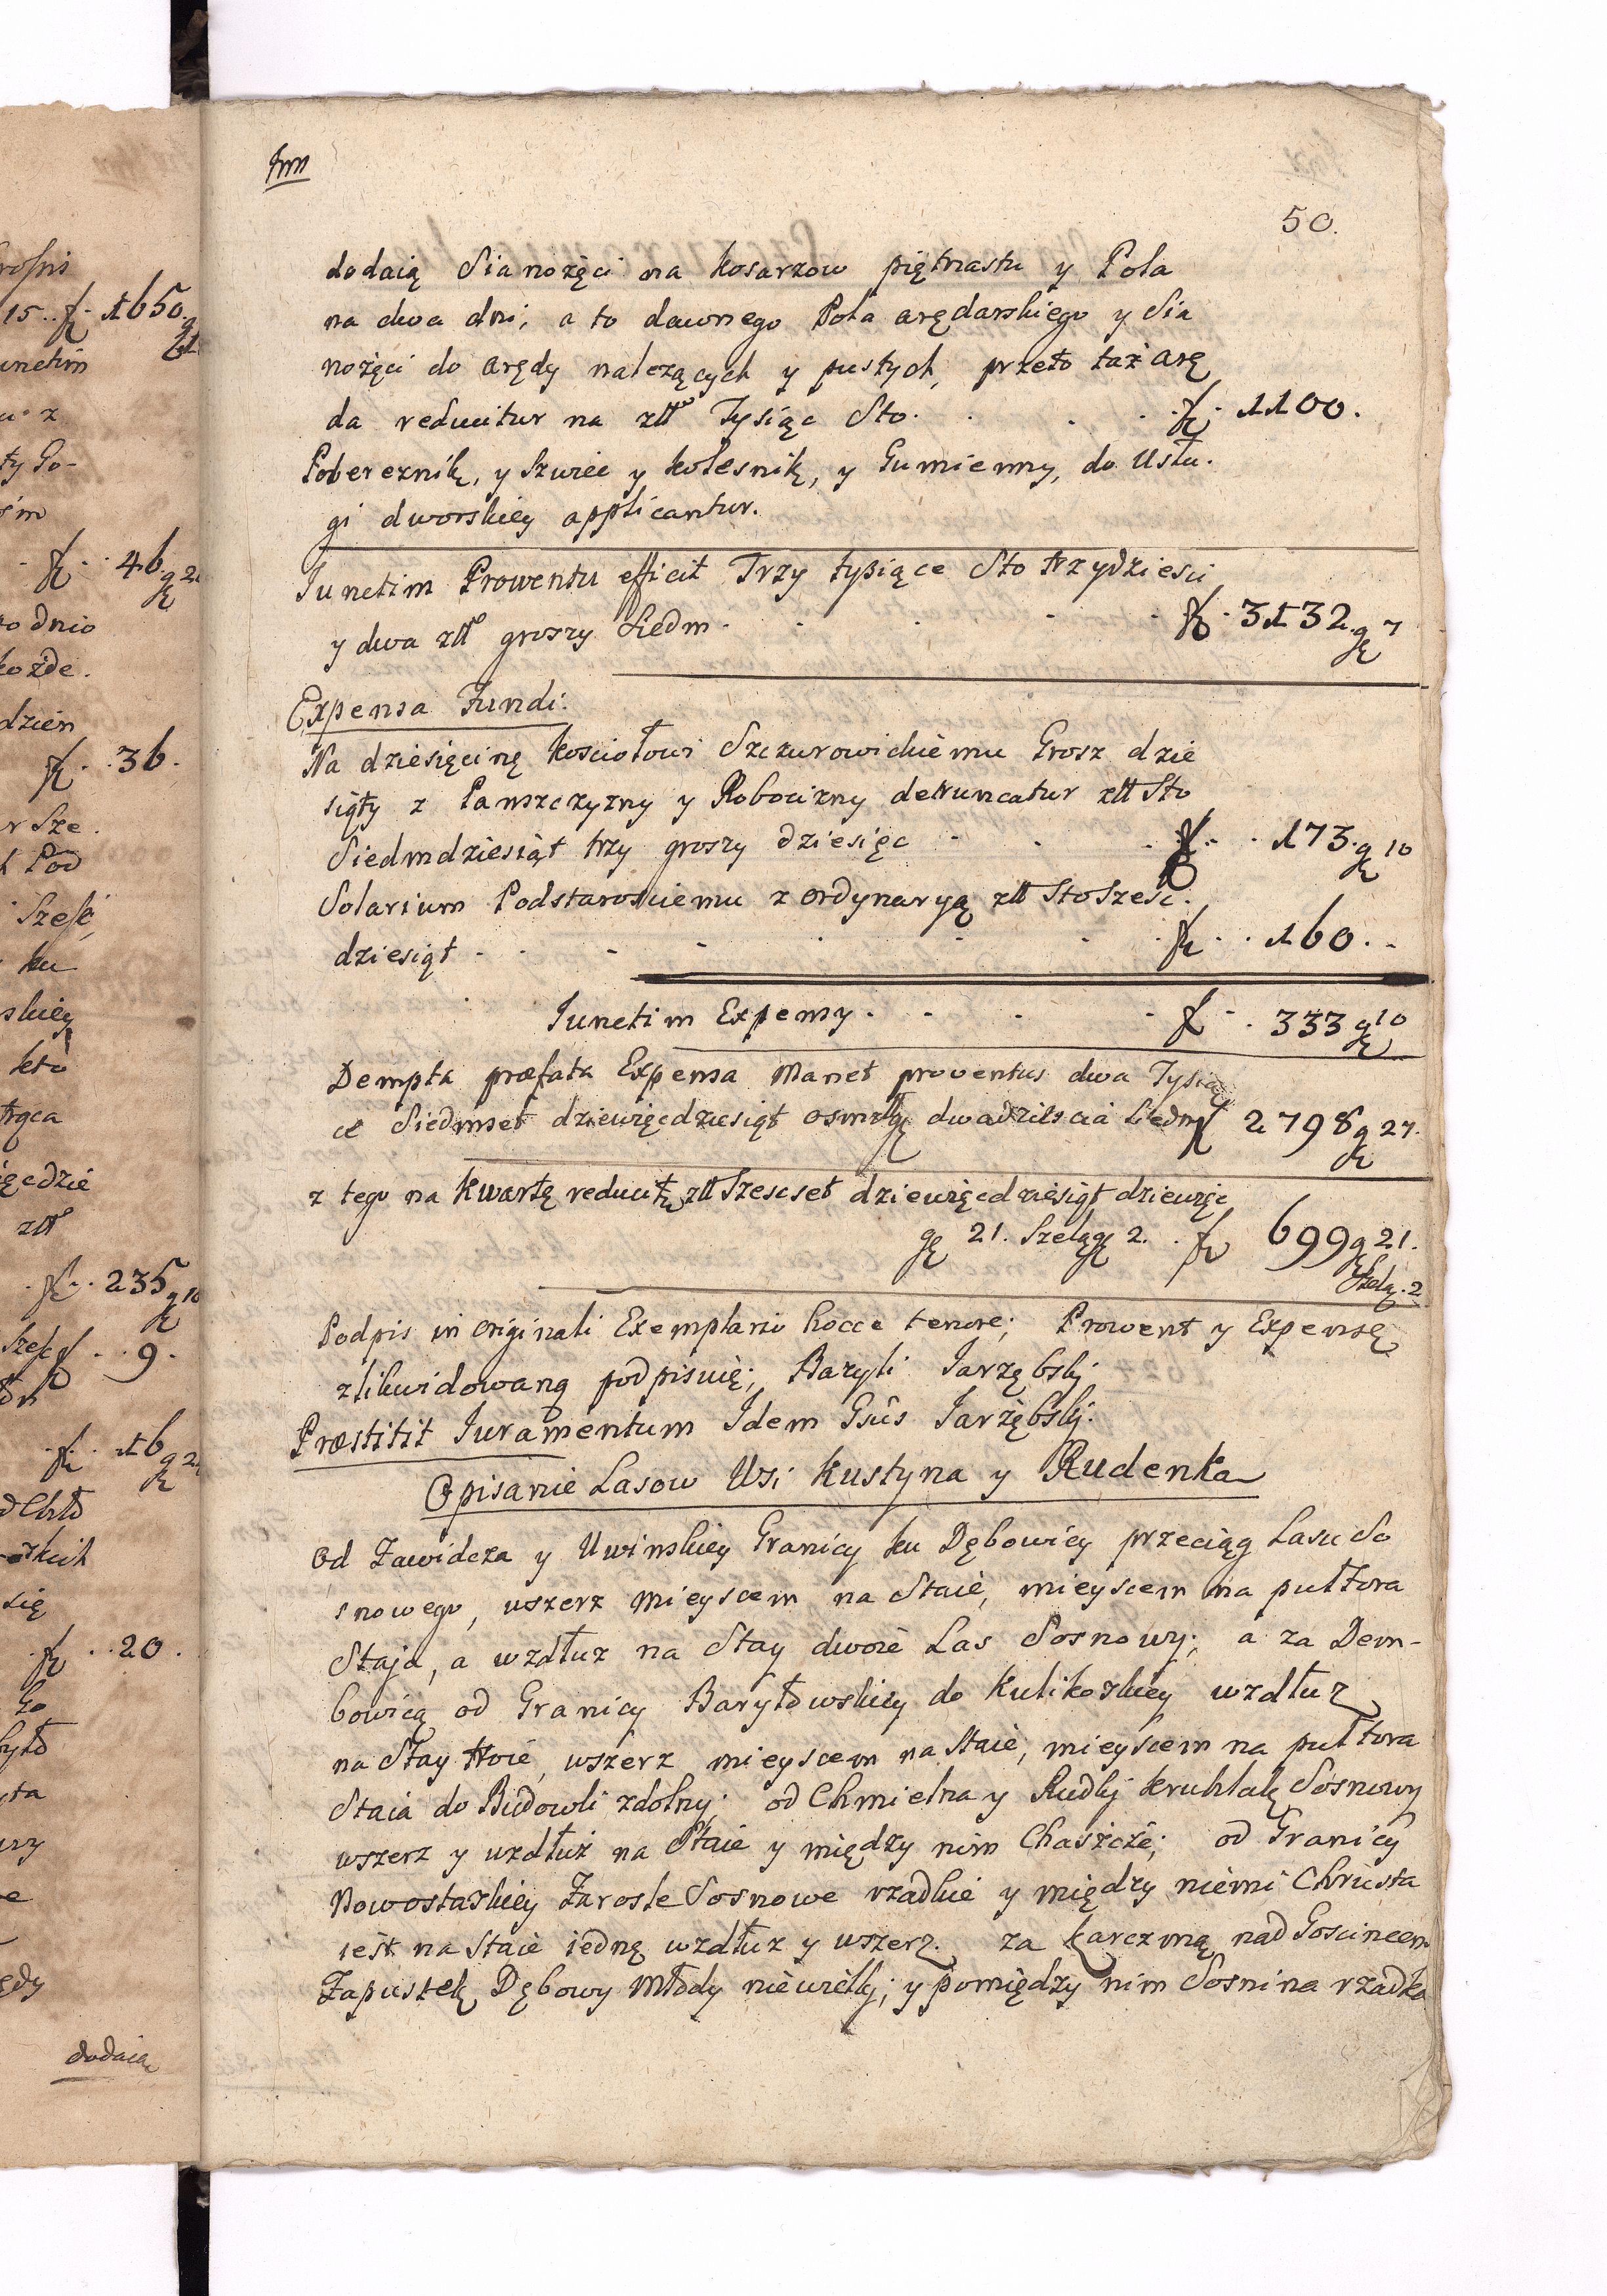 50.
dodaią Sianożęci na kosarzow piętnastu y Pola
na dwa dni, a to dawnego Pola arędarskiego y Sia
nożęci do arędy należących y pustych, przeto taż arę
da reducitur na złł Tysiąc Sto. 1100.
Pobereznik, y Szwiec y kolesnik, y Gumienny, do Usłu-
gi dworskiey applicantur.
Iunctim Prowentu efficit Trzy tysiące Sto trzydziesci
y dwa złł groszy Siedm 3132. g 7
Expensa Fundi:
Na dziesięcinę kosciołowi Szczurowickiemu Grosz dzie
siąty z Panszczyzny y Robocizny detruncatur złł Sto
Siedmdziesiąt trzy groszy dziesięc 173. g 10
Solarium Podstarosciemu z ordynaryą złł Sto Szesc.
dziesiąt 160.
Iunctim Expensy 333 g 10
Dempta præfata Expensa Manet proventus dwa Tysią
ce Siedmset dziewięcdziesiąt osm złł g dwadziescia Siedm 2798 g 27.
z tego na kwartę reducit złł Szescset dziewięcdziesiąt dziewięc
g 21. Szeląg 2. 699 g 21.
Szelą. 2
Podpis in originali Exemplario hocce tenore; Prowent y Expensę
zlikwidowaną podpisuię; Bazyli Iarzębskj
Præstitit Iuramentum Idem Gsûs Iarzębskj.
Opisanie Lasow Wsi Kustyna y Rudenka
Od Zawidcza y Uwinskiey Granicy ku Dębowicy przeciąg Lasu So
snowego, wszerz mieyscem na Staie, mieyscem na pułtora
Staja, a wzdłuz na Stay dwoie Las Sosnowy; a za Dem-
bowicą od Granicy Baryłowskiey do Kulikoskiey wzdłuz
na Stay troie, wszerz mieyscem na Staie, mieyscem na pułtora
Staia do Budowli zdolny; od Chmielna y Rudkj kruhlak Sosnowy
wszerz y wzdłuż na Staie y między nim Chaszcze; od Granicy
Nowostaskiey Zarosle Sosnowe rzadkie y między niemi Chrusta
iest na Staie iednę wzdłuz y wszerz. za karczmą nad Goscincem
Zapustek Dębowy Młody niewielkj; y pomiędzy nim Sosnina rzadka